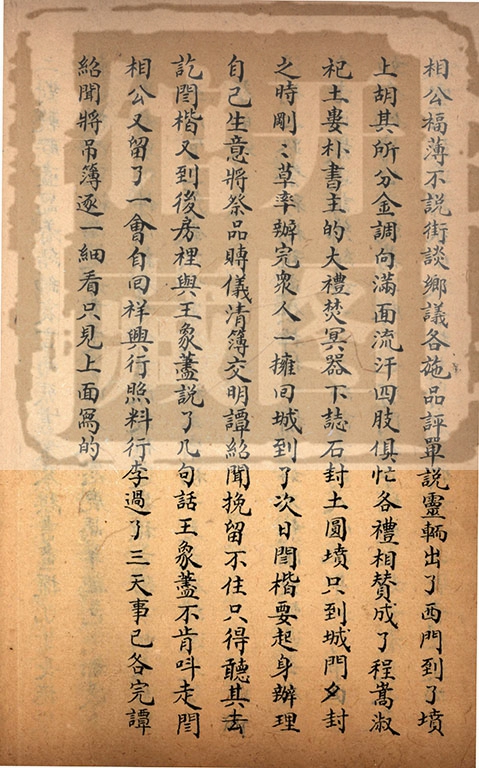 相公福薄不説街談鄉議各施品評單説靈輀出了西門到了墳
上胡其所分金調向滿面流汗四肢俱忙各禮相賛成了程嵩淑
祀土婁朴書主的大禮焚冥器下誌石封土圓墳只到城門夕封
之時剛〻草率辦完衆人一擁回城到了次日閻楷要起身辦理
自己生意將祭品賻儀清簿交明譚紹聞挽留不住只得聽其去
訖閻楷又到後房裡與王象藎説了几句話王象藎不肯呌走閻
相公又留了一會自回祥興行照料行李過了三天事已各完譚
紹聞將吊簿逐一細看只見上面寫的